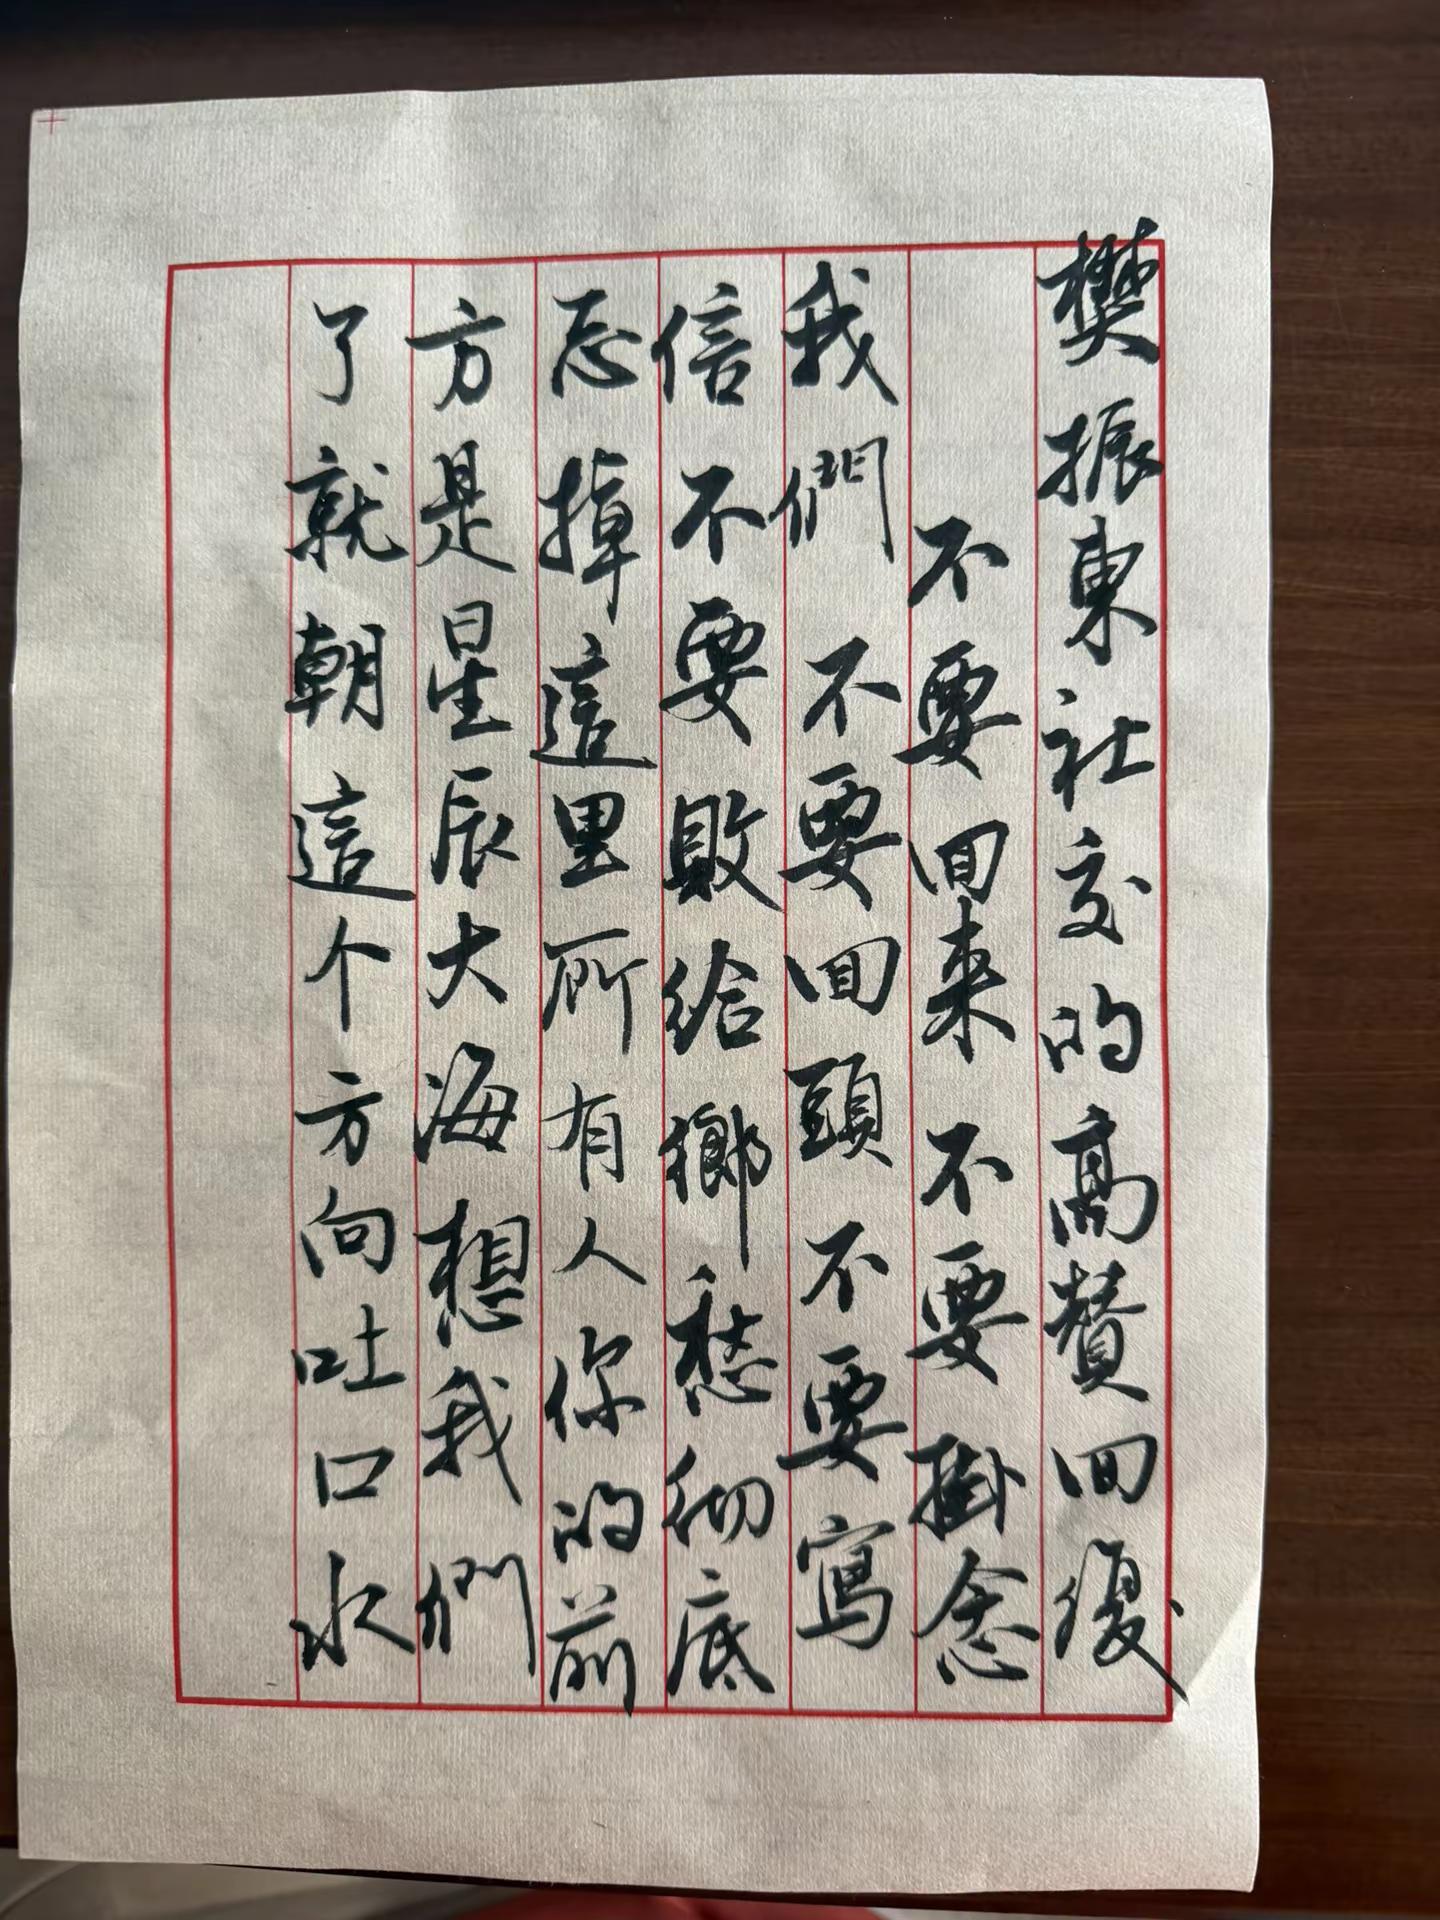 樊振東社交的高贊回復
不要回来不要掛念
我們不要回頭不要寫
信不要敗給鄉愁彻底
忘掉這里所有人你的前
方是星辰大海想我們
了就朝這个方向吐口水